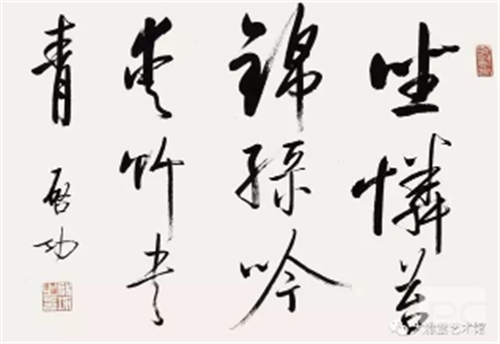 坐憐苔
錦緑吟
愛竹書
青
啓功
艺术馆